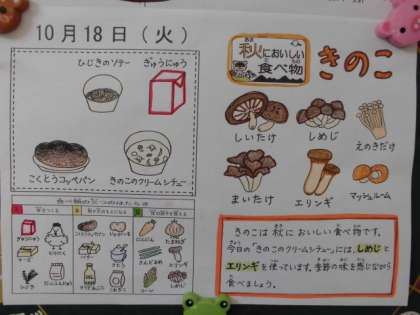 10月18日（火）
ひじきのソテー
ぎゅうにゅう
こくとうコッペパン
きのこのクリームシチュー
秋においしい
食べ物
きのこ
しいたけ
しめじ
えのきだけ
まいたけ
エリンギ
マッシュルーム
きのこは秋においしい食べ物です。
今日の「きのこのクリームシチュー」には、しめじと
エリンギを使っています。季節の味を感じながら
食べましょう。
ぎゅうにゅう
とりにく
にんじん
たまねぎ
しめじ
エリンギ
コーン